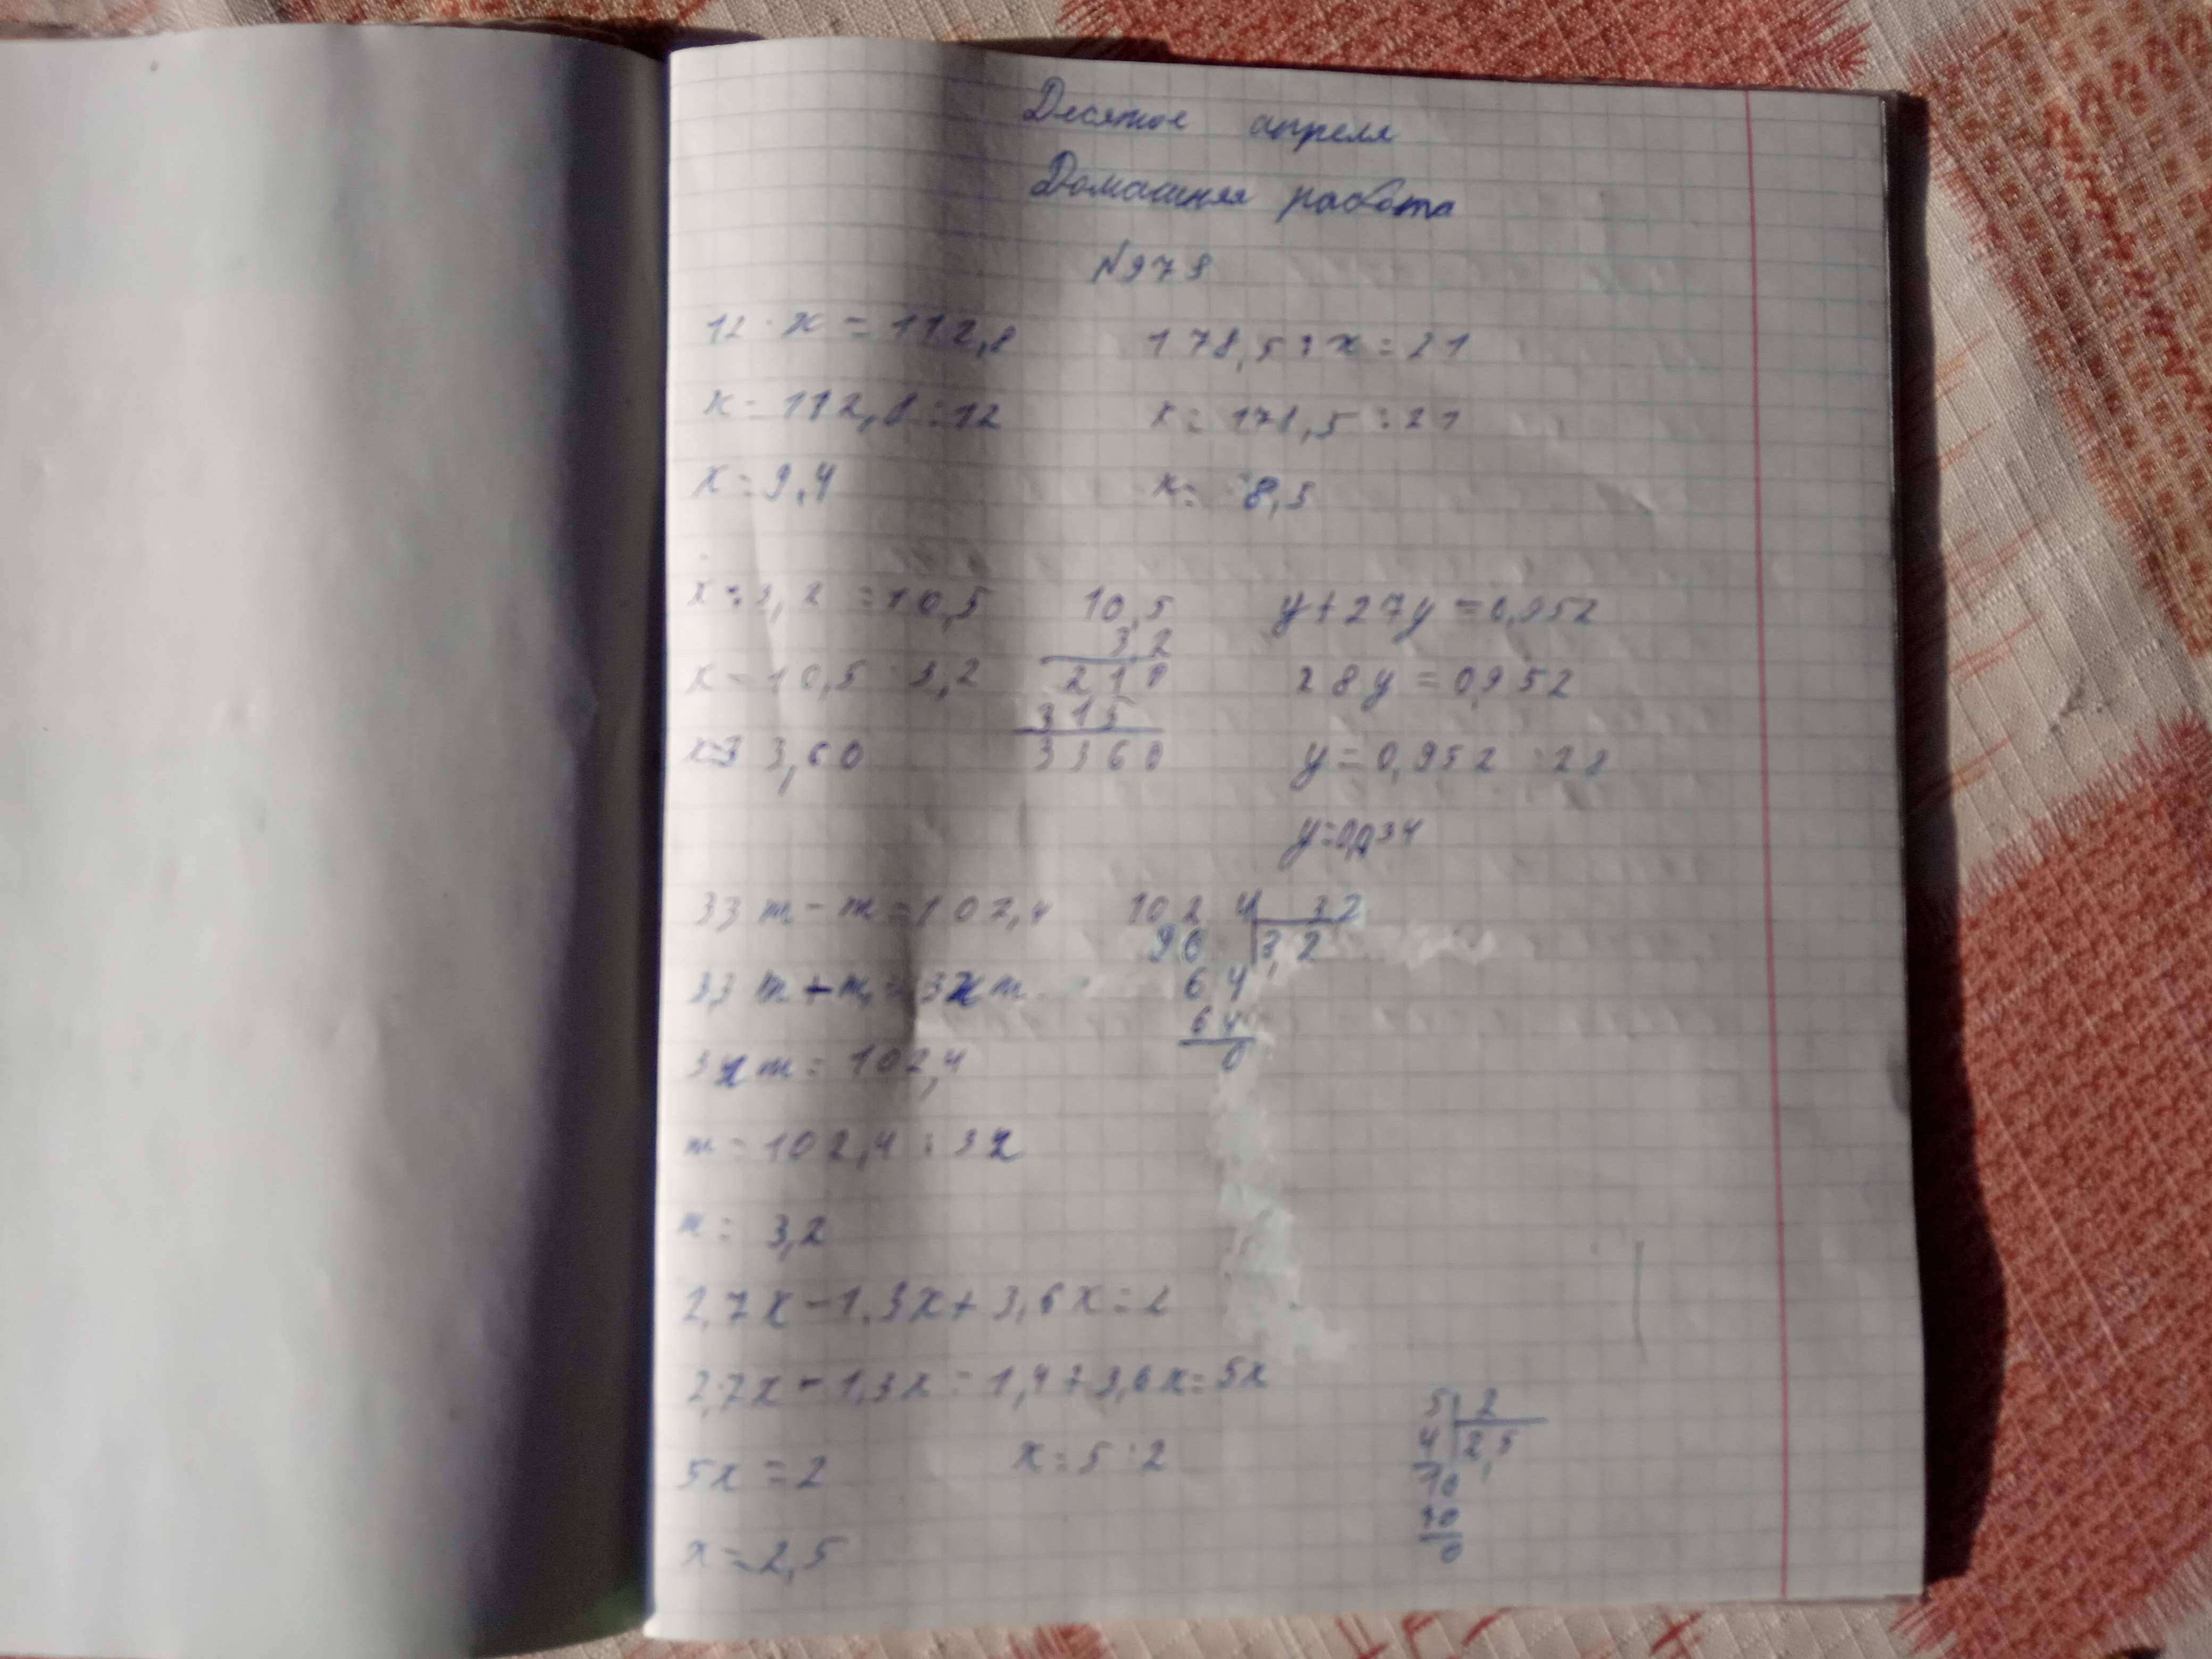 Десятое апреля
Домашняя работа
№979
12 · x = 112,8    178,5 : x = 21
x = 112,8 : 12    x = 178,5 : 21
x = 9,4    x = 8,5
x : 3,2 = 10,5    10,5    y + 27y = 0,952
3,2
x = 10,5 · 3,2    210    28y = 0,952
315
x = 33,60    3360    y = 0,952 : 28
y = 0,034
33m - m = 102,4    102 4 | 32
96 | 3 2
33m - m = 32m    64
64
32m = 102,4    0
m = 102,4 : 32
m = 3,2
2,7x - 1,3x + 3,6x = 2
2,7x - 1,3x = 1,4 + 3,6x = 5x
5 | 2
4 | 2,5
5x = 2    x = 5 : 2    10
10
x = 2,5    0